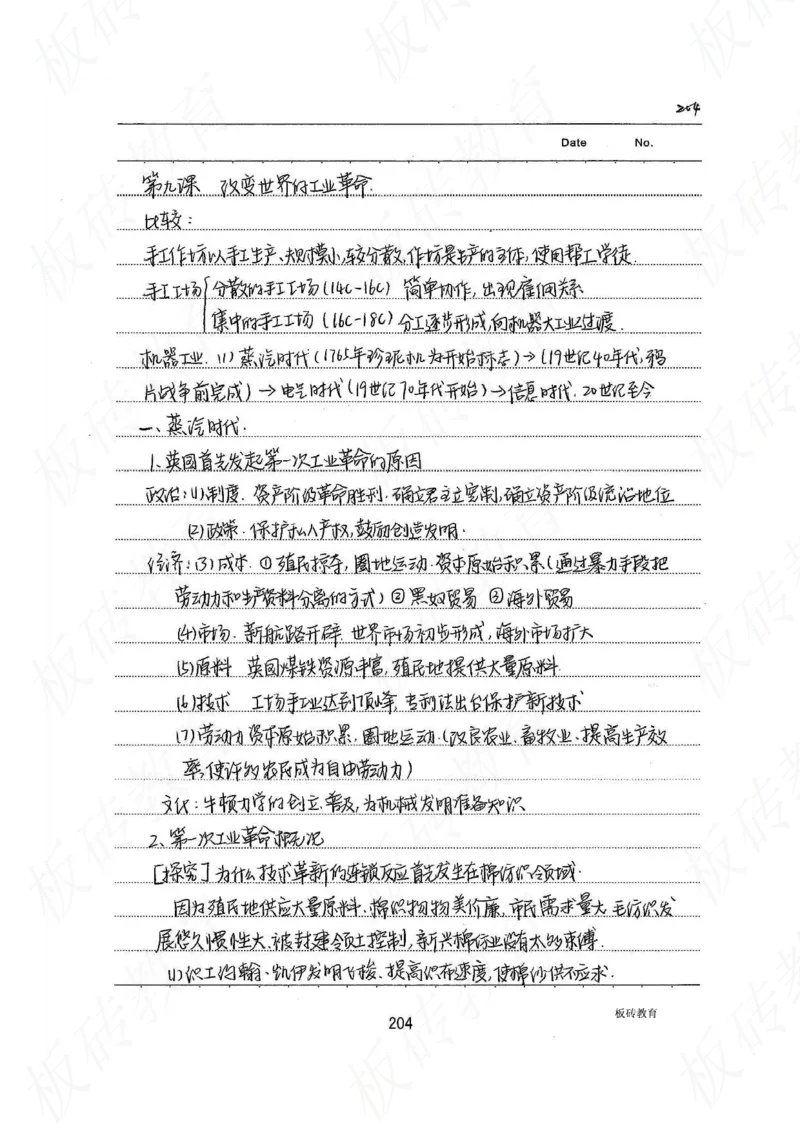 204
Date No.
第九课 改变世界的工业革命.
比较：
手工作坊以手工生产、规模小,较分散,作坊是生产的主体,使用帮工学徒.
手工工场 分散的手工工场(14C-16C) 简单协作,出现雇佣关系
集中的手工工场(16C-18C)分工逐步形成,向机器大工业过渡.
机器工业.(1)蒸汽时代(1765年珍妮机为开始标志)→(19世纪40年代,鸦
片战争前完成)→电气时代(19世纪70年代开始)→信息时代.20世纪至今
一、蒸汽时代.
1、英国首先发起第一次工业革命的原因
政治:(1)制度.资产阶级革命胜利.确立君主立宪制,确立资产阶级统治地位
(2)政策.保护私人产权,鼓励创造发明.
经济:(3)成本.①殖民掠夺,圈地运动.资本原始积累(通过暴力手段把
劳动力和生产资料分离的方式)②黑奴贸易 ③海外贸易
(4)市场.新航路开辟.世界市场初步形成,海外市场扩大
(5)原料 英国煤铁资源丰富,殖民地提供大量原料.
(6)技术 工场手工业达到顶峰,专利法出台保护新技术
(7)劳动力 资本原始积累.圈地运动.(改良农业、畜牧业、提高生产效
率,使许多农民成为自由劳动力)
文化:牛顿力学的创立、普及,为机械发明准备知识
2、第一次工业革命概况
[探究]为什么技术革新的连锁反应首先发生在棉纺织领域.
因为殖民地供应大量原料、棉织物物美价廉,市民需求量大.毛纺织发
展悠久惯性大.被封建领主控制,新兴棉纺业没有太多束缚.
(1)织工约翰·凯伊发明飞梭、提高织布速度,使棉纱供不应求.
204
板砖教育
板砖教育